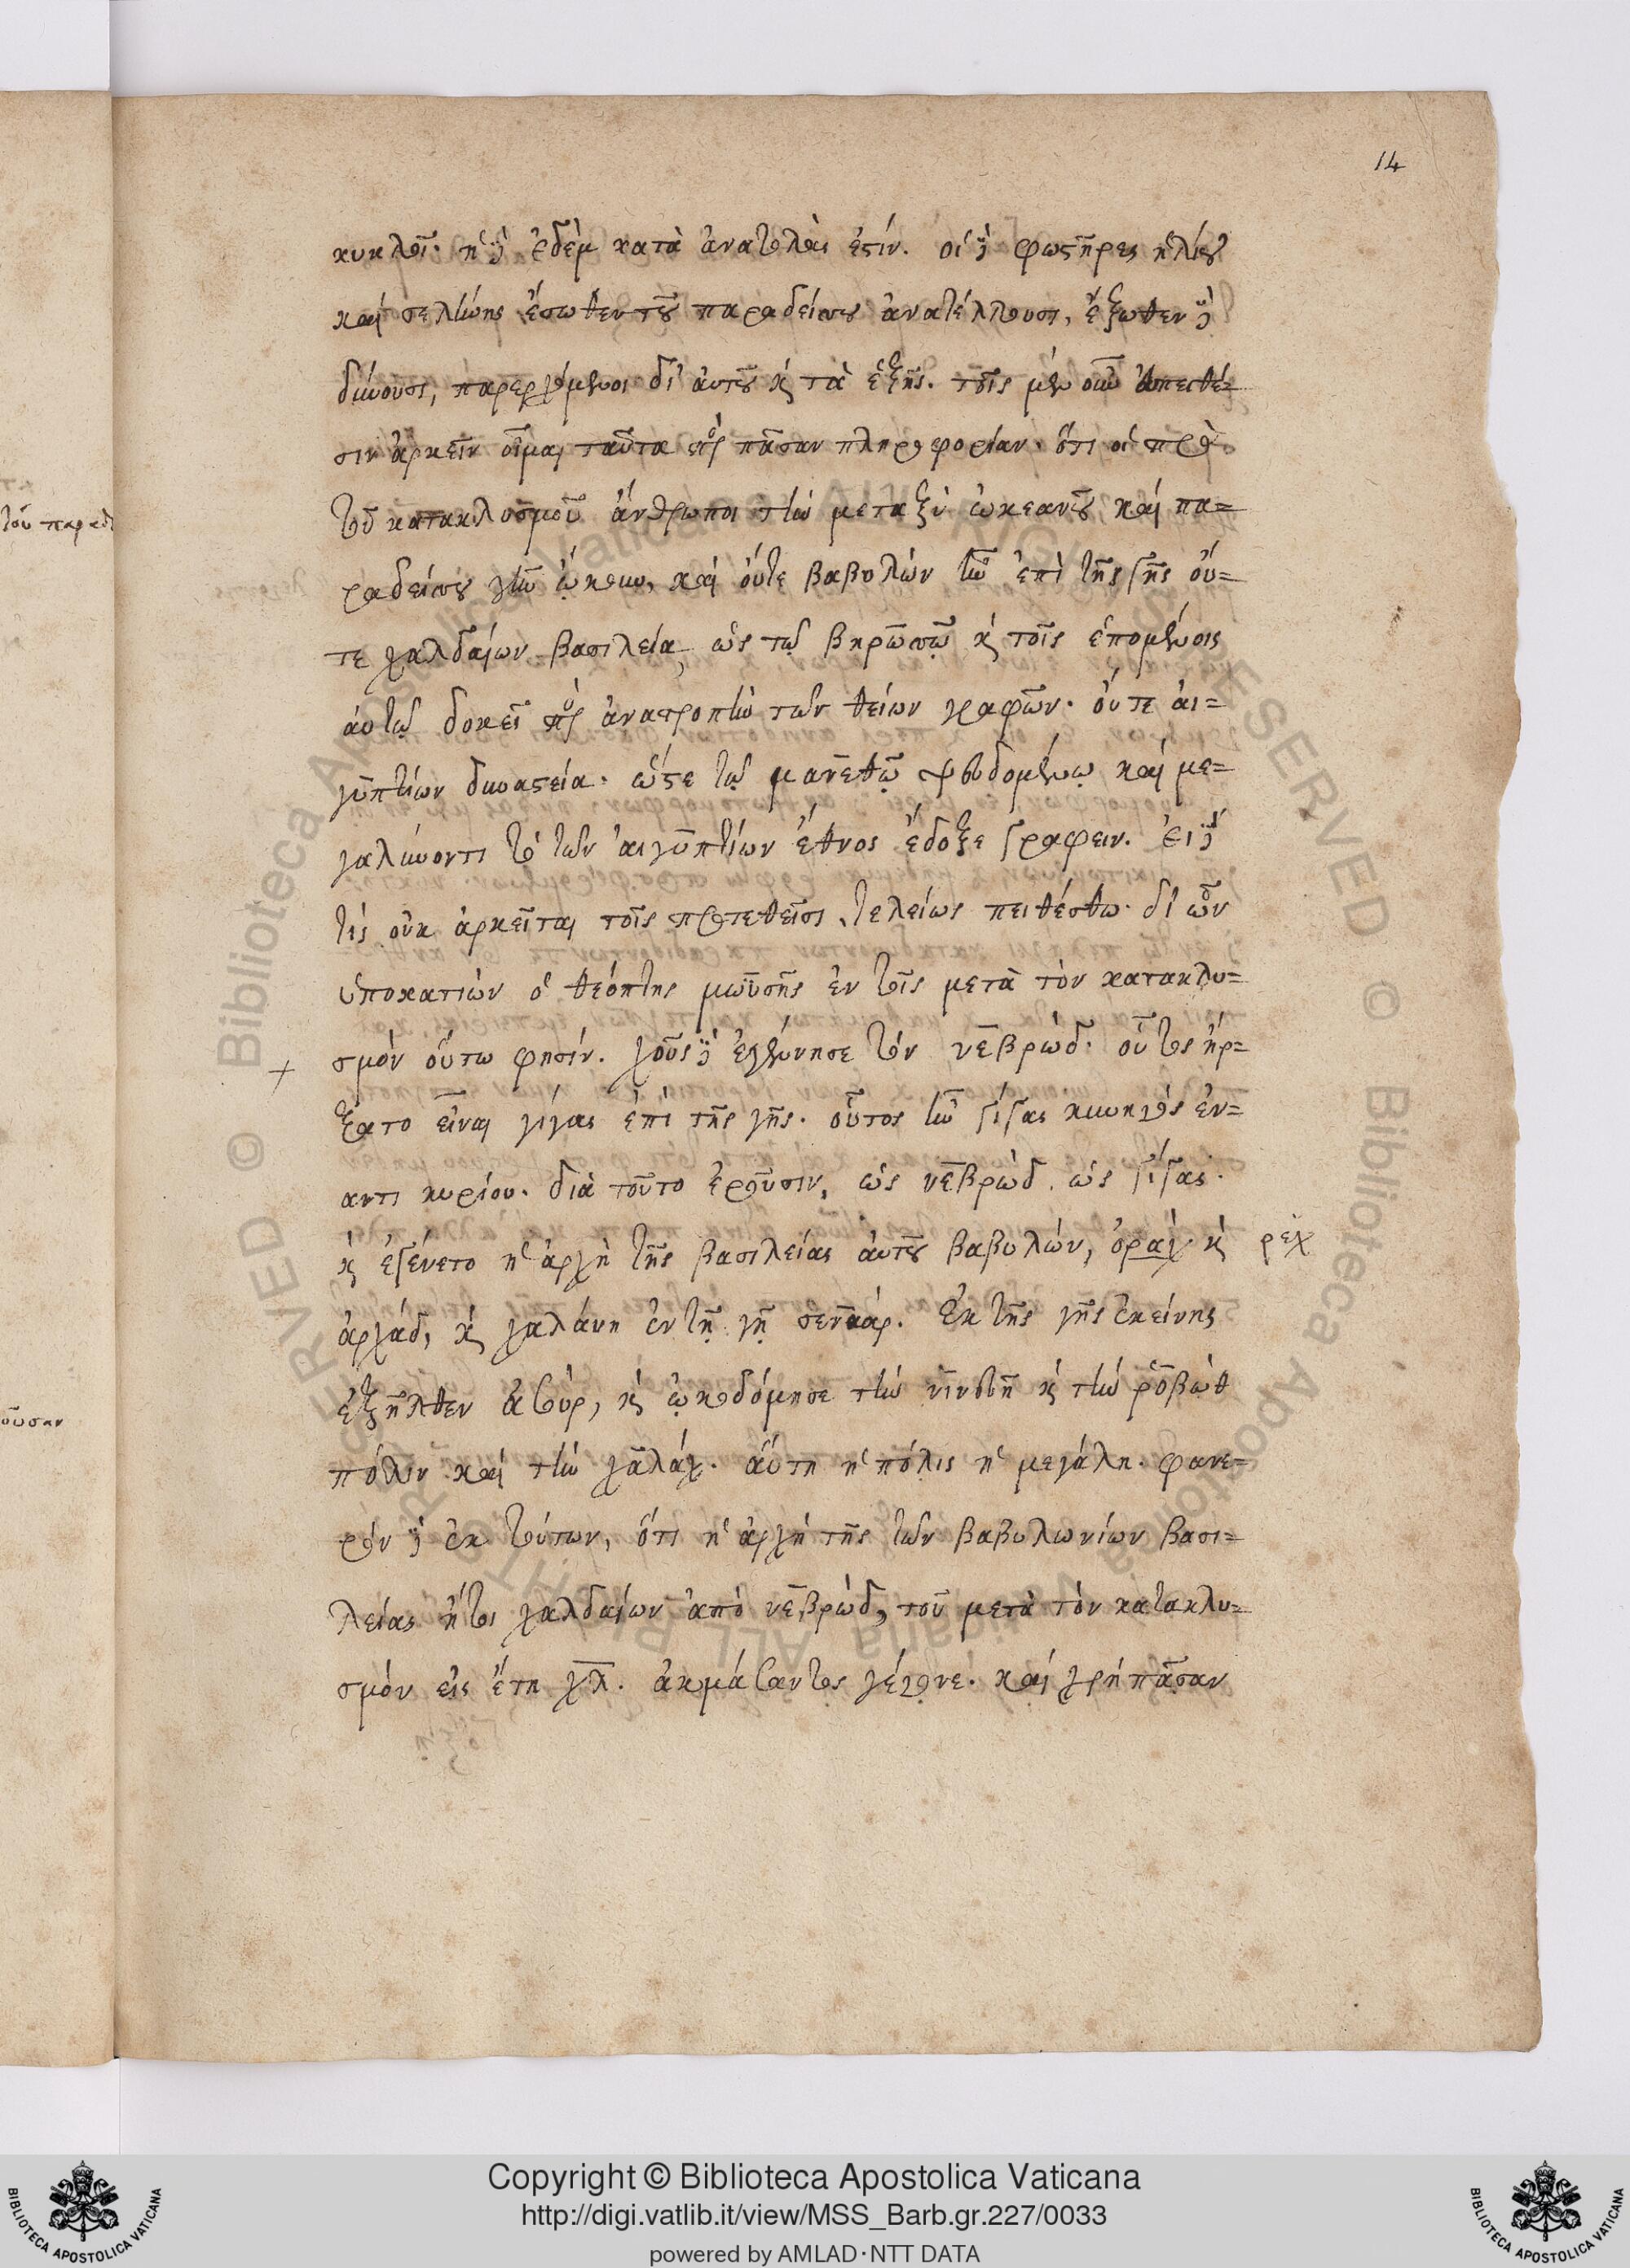 14
κυκλοῖ. ἡ δὲ ἐδὲμ κατὰ ἀνατολάς ἐστίν. οἱ δὲ φωστῆρες ἡλίου
καὶ σελήνης ἔσωθεν τοῦ παραδείσου ἀνατέλλουσι, ἔξωθεν δὲ
δύνουσι, παρερχόμενοι δι' αὐτοῦ καὶ τὰ ἑξῆς. τοῖς μὲν οὖν εὐπειθέ=
σιν ἀρκεῖν οἶμαι ταῦτα πρὸς πᾶσαν πληροφορίαν. ὅτι οἱ πρὸ
τοῦ κατακλυσμοῦ ἄνθρωποι τὴν μεταξὺ ὠκεανοῦ καὶ πα=
ραδείσου γῆν ᾤκουν, καὶ οὔτε βαβυλὼν ἦν ἐπὶ τῆς γῆς οὔ=
τε χαλδαίων βασιλεία, ὡς τῷ βηρώσσῳ καὶ τοῖς ἑπομένοις
αὐτῷ δοκεῖ πρὸς ἀνατροπὴν τῶν θείων γραφῶν. οὔτε αἰ=
γυπτίων δυναστεία. ὥστε τῷ μανεθῷ ψευδομένῳ καὶ με=
γαλύνοντι τὸ τῶν αἰγυπτίων ἔθνος ἔδοξε γράφειν. εἰ δέ
τις οὐκ ἀρκεῖται τοῖς προτεθεῖσι, τελείως πειθέσθω. δι' ὧν
ὑποκατιὼν ὁ θεόπτης μωϋσῆς ἐν τοῖς μετὰ τὸν κατακλυ=
σμὸν οὕτω φησίν. χοὺς δὲ ἐγέννησε τὸν νεβρώδ. οὗτος ἤρ=
ξατο εἶναι γίγας ἐπὶ τῆς γῆς. οὗτος ἦν γίγας κυνηγὸς ἐν=
αντι κυρίου. διὰ τοῦτο ἐροῦσιν, ὡς νεβρὼδ ὡς γίγας.
καὶ ἐγένετο ἡ ἀρχὴ τῆς βασιλείας αὐτοῦ βαβυλών, ὀράχ καὶ ρέχ
ἀρχάδ, καὶ χαλάνη ἐν τῇ γῇ σενναάρ. ἐκ τῆς γῆς ἐκείνης
ἐξῆλθεν ἀσούρ, καὶ ᾠκοδόμησε τὴν νινευῆ καὶ τὴν ῥοβὼθ
πόλιν καὶ τὴν χαλάχ. αὕτη ἡ πόλις ἡ μεγάλη. φανε=
ρὸν δὲ ἐκ τούτων, ὅτι ἡ ἀρχὴ τῆς τῶν βαβυλωνίων βασι=
λείας ἤτοι χαλδαίων ἀπὸ νεβρώδ, τοῦ μετὰ τὸν κατακλυ=
σμὸν εἰς ἔτη χλ. ἀκμάσαντος γέγονε. καὶ χρὴ πᾶσαν
Copyright © Biblioteca Apostolica Vaticana
http://digi.vatlib.it/view/MSS_Barb.gr.227/0033
powered by AMLAD·NTT DATA